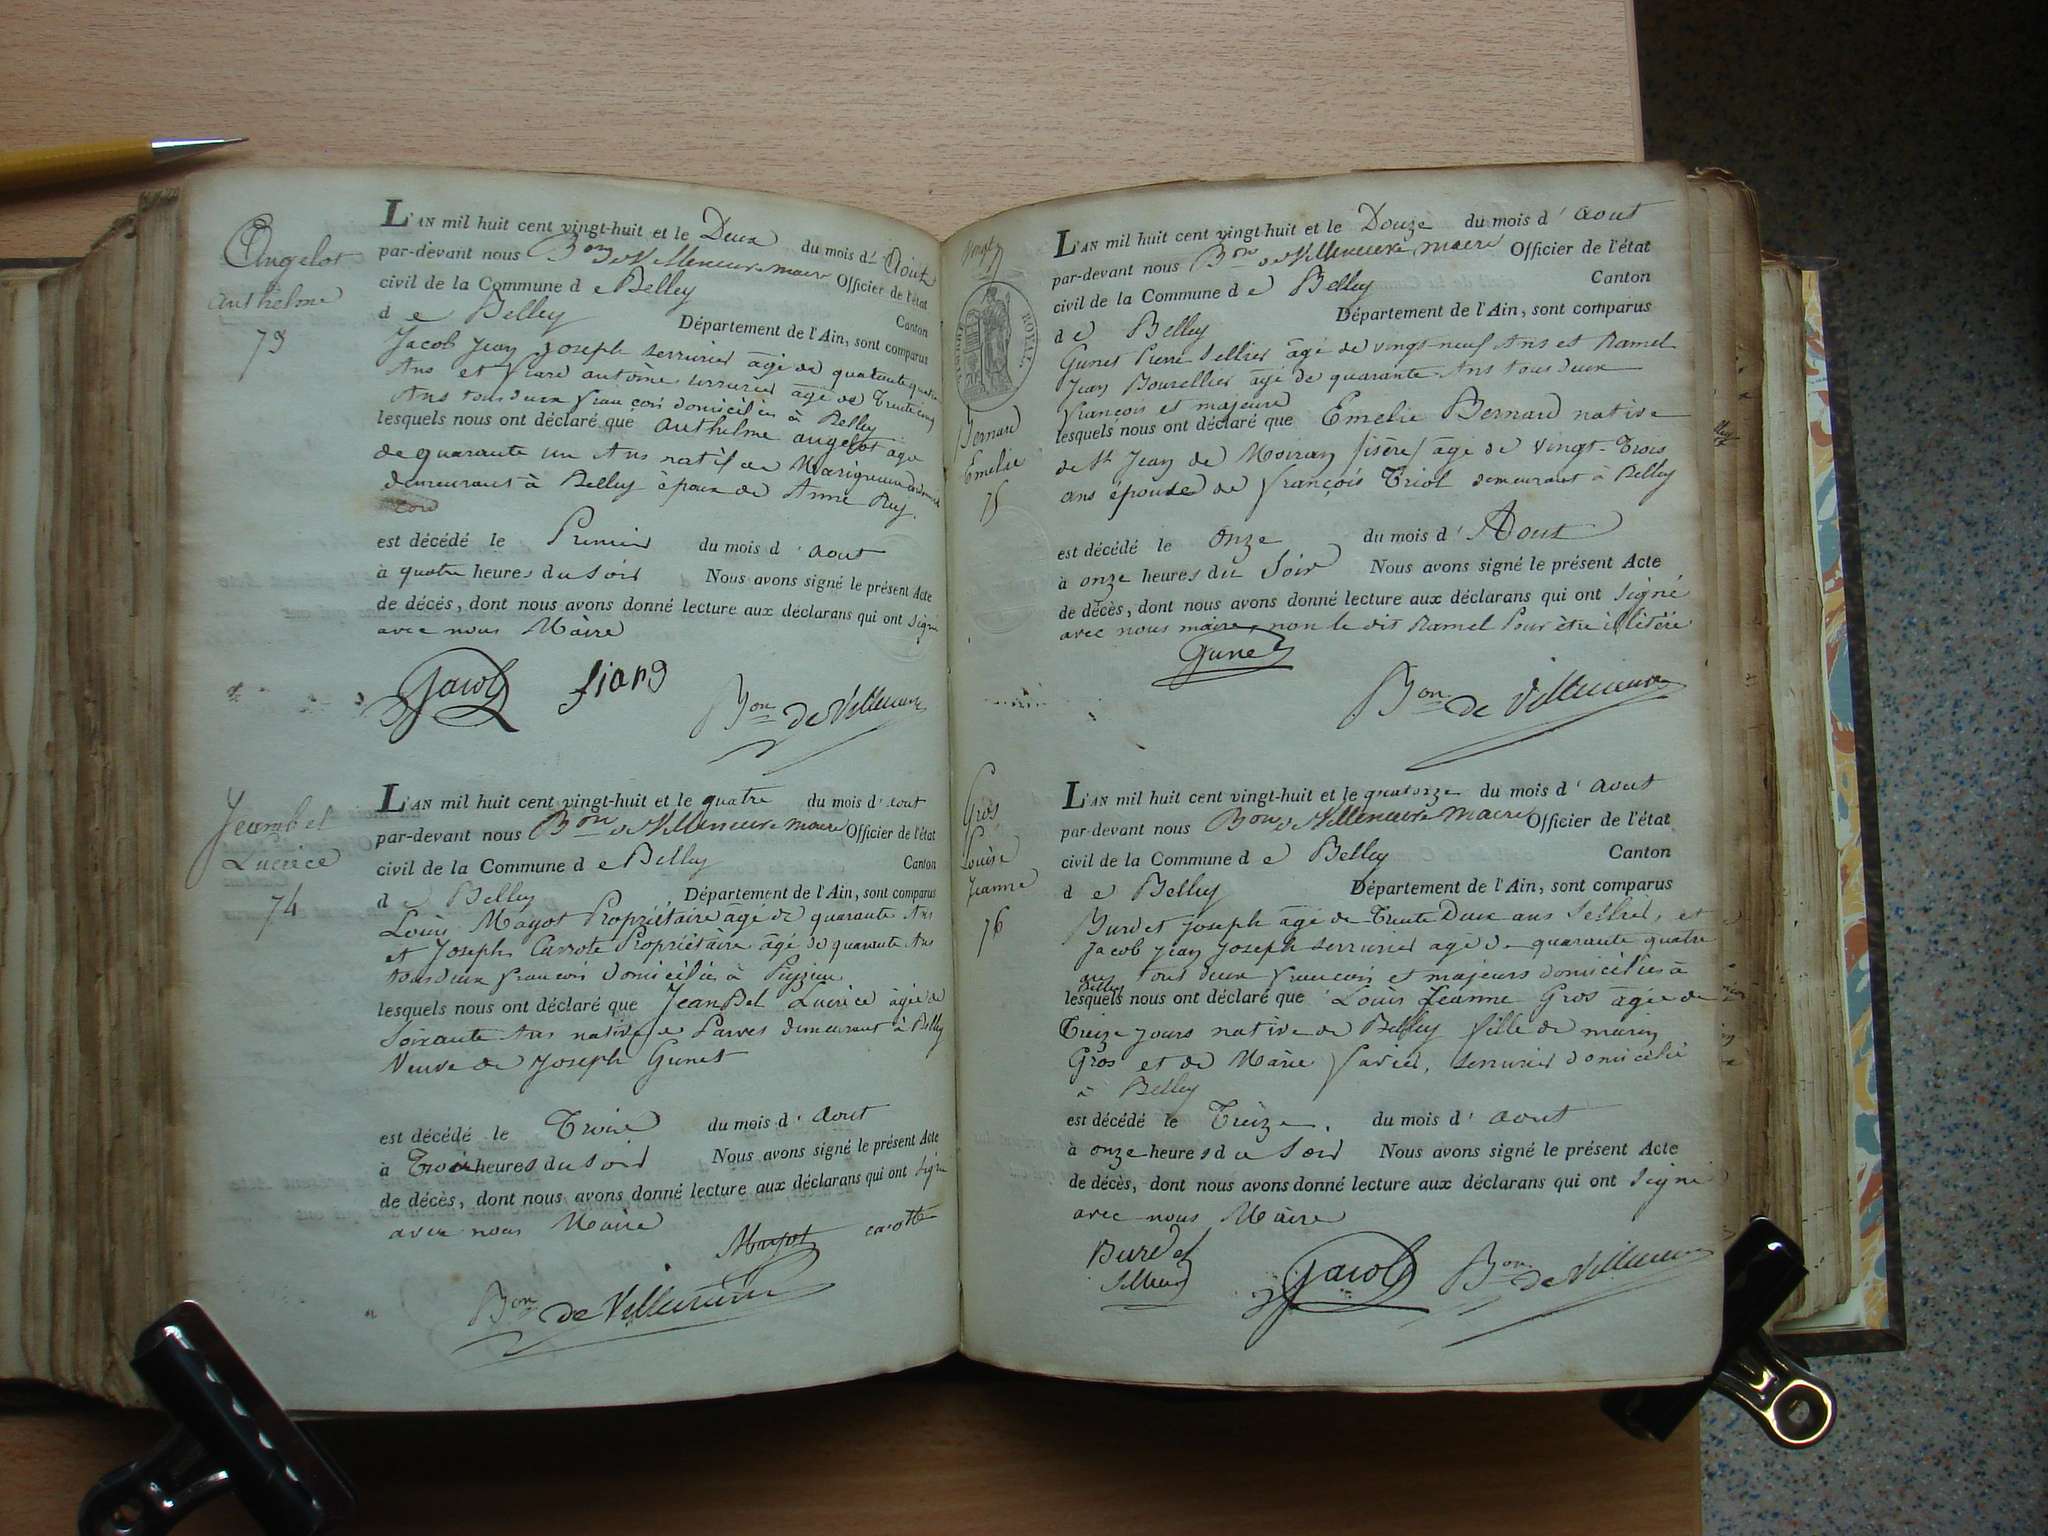 Angelot
Anthelme
73
L'AN mil huit cent vingt-huit et le Deux du mois d' Aout
par-devant nous Bon de Villeneuve maire Officier de l'état
civil de la Commune d e Belley Canton
d e Belley Département de l'Ain, sont comparus
Jacob Jean Joseph serrurier âgé de quarante quatre
Ans et fiard antoine serrurier âgé de Trente cinq
Ans tous deux françois domiciliés à Belley
lesquels nous ont déclaré que Anthelme angelot âgé
de quarante un Ans natif de Marignieu
demeurant à Belley époux de Anne Rey.
est décédé le Premier du mois d' aout
à quatre heures du soir Nous avons signé le présent Acte
de décés, dont nous avons donné lecture aux déclarans qui ont signé
avec nous Maire
Jacob fiard Bon de Villeneuve
Jeambel
Lucrèce
74
L'AN mil huit cent vingt-huit et le quatre du mois d' aout
par-devant nous Bon de Villeneuve maire Officier de l'état
civil de la Commune d e Belley Canton
d e Belley Département de l'Ain, sont comparus
Louis Mayot Propriétaire âgé de quarante Ans
et Joseph Carrote Propriétaire âgé de quarante Ans
tous deux françois domiciliés à
lesquels nous ont déclaré que JeanBel Lucrèce âgée de
Soixante Ans native de Parves demeurant à Belley
Veuve de Joseph Gunet
est décédé le Trois du mois d' aout
à Trois heures du soir Nous avons signé le présent Acte
de décès, dont nous avons donné lecture aux déclarans qui ont signé
avec nous Maire
Mayot carotte
Bon de Villeneuve
TIMBRE ROYAL
Bernard
Emelie
75
L'AN mil huit cent vingt-huit et le Douze du mois d' aout
par-devant nous Bon de Villeneuve maire Officier de l'état
civil de la Commune d e Belley Canton
d e Belley Département de l'Ain, sont comparus
Gunet Pierre Sellier âgé de vingt neuf Ans et Ramel
Jean Bourellier âgé de quarante Ans tous deux
françois et majeurs
lesquels nous ont déclaré que Emelie Bernard native
de St Jean de Moiran (isère) âgé de vingt-Trois
ans épouse de françois Triol demeurant à Belley
est décédé le onze du mois d' Aout
à onze heures du Soir Nous avons signé le présent Acte
de décès, dont nous avons donné lecture aux déclarans qui ont signé
avec nous maire, non le dit Ramel Pour être illitéré
Gunet
Bon de Villeneuve
Gros
Louise
Jeanne
76
L'AN mil huit cent vingt-huit et le quatorze du mois d' aout
par-devant nous Bon de Villeneuve Maire Officier de l'état
civil de la Commune d e Belley Canton
d e Belley Département de l'Ain, sont comparus
Burdet Joseph âgé de Trente Deux ans Sellier, et
Jacob Jean Joseph serrurier agé de quarante quatre
ans tous deux francois et majeurs domiciliés à
Belley
lesquels nous ont déclaré que Louis Jeanne Gros âgée de
Treize jours native de Belley fille de marin
Gros et de Marie favier, serrurier domicilié
à Belley
est décédé le Treize. du mois d' aout
à onze heures du soir Nous avons signé le présent Acte
de décès, dont nous avons donné lecture aux déclarans qui ont signé
avec nous Maire
Burdet
Sellier
Jacob Bon de Villeneuve